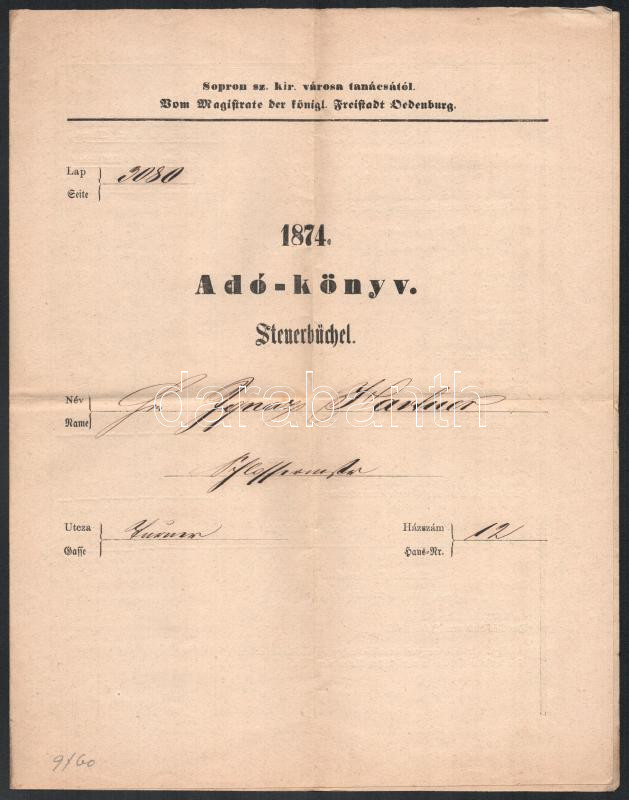 Sopron sz. kir. városa tanácsától.
Vom Magistrate der königl. Freistadt Oedenburg.
Lap
Seite
3080
1874.
Adó-könyv.
Steuerbüchel.
Név
Name
Hr Ignaz
darabanth
Schlossermstr
Utcza
Gasse
Házszám
Haus-Nr.
12
9/60